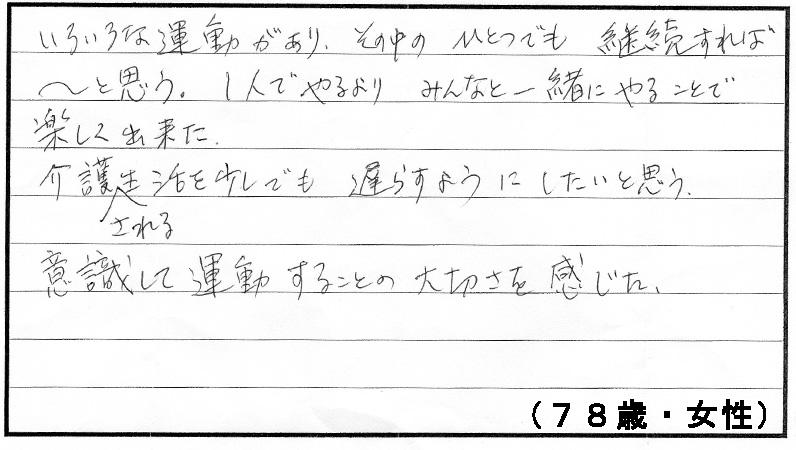 いろいろな運動があり、その中のひとつでも継続すれば
〜と思う。1人でやるよりみんなと一緒にやることで
楽しく出来た。
介護される生活を少しでも遅らすようにしたいと思う。
意識して運動することの大切さを感じた。
(78歳・女性)